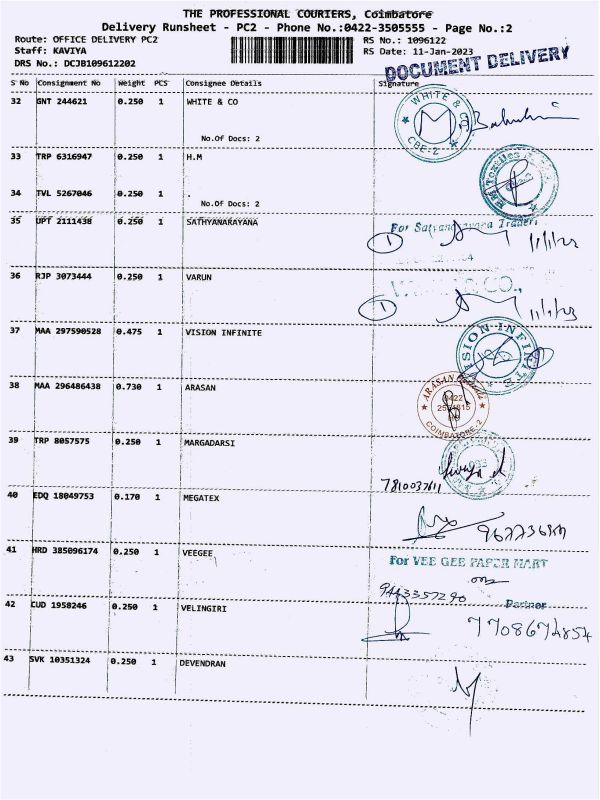 THE PROFESSIONAL COURIERS, Coimbatore
Delivery Runsheet - PC2 - Phone No.:0422-3505555 - Page No.:2
Route: OFFICE DELIVERY PC2
RS No.: 1096122
Staff: KAVIYA
RS Date: 11-Jan-2023
DRS No.: DCJB109612202
DOCUMENT DELIVERY
S No Consignment No Weight PCS Consignee Details Signature
32 GNT 244621 0.250 1 WHITE & CO
WHITE & CO
CBE-2
No.Of Docs: 2
33 TRP 6316947 0.250 1 H.M
34 TVL 5267046 0.250 1 .
No.Of Docs: 2
35 UPT 2111438 0.250 1 SATHYANARAYANA
1 11/1/23
36 RJP 3073444 0.250 1 VARUN
CO.,
1 11/1/23
37 MAA 297590528 0.475 1 VISION INFINITE
VISION INFINITE
38 MAA 296486438 0.730 1 ARASAN
ARASAN
0422
COIMBATORE-2
39 TRP 8057575 0.250 1 MARGADARSI
40 EDQ 18049753 0.170 1 MEGATEX
41 HRD 385096174 0.250 1 VEEGEE
For VEE GEE PAPER MART
9443357290
Partner
42 CUD 1958246 0.250 1 VELINGIRI
7708674854
43 SVK 10351324 0.250 1 DEVENDRAN